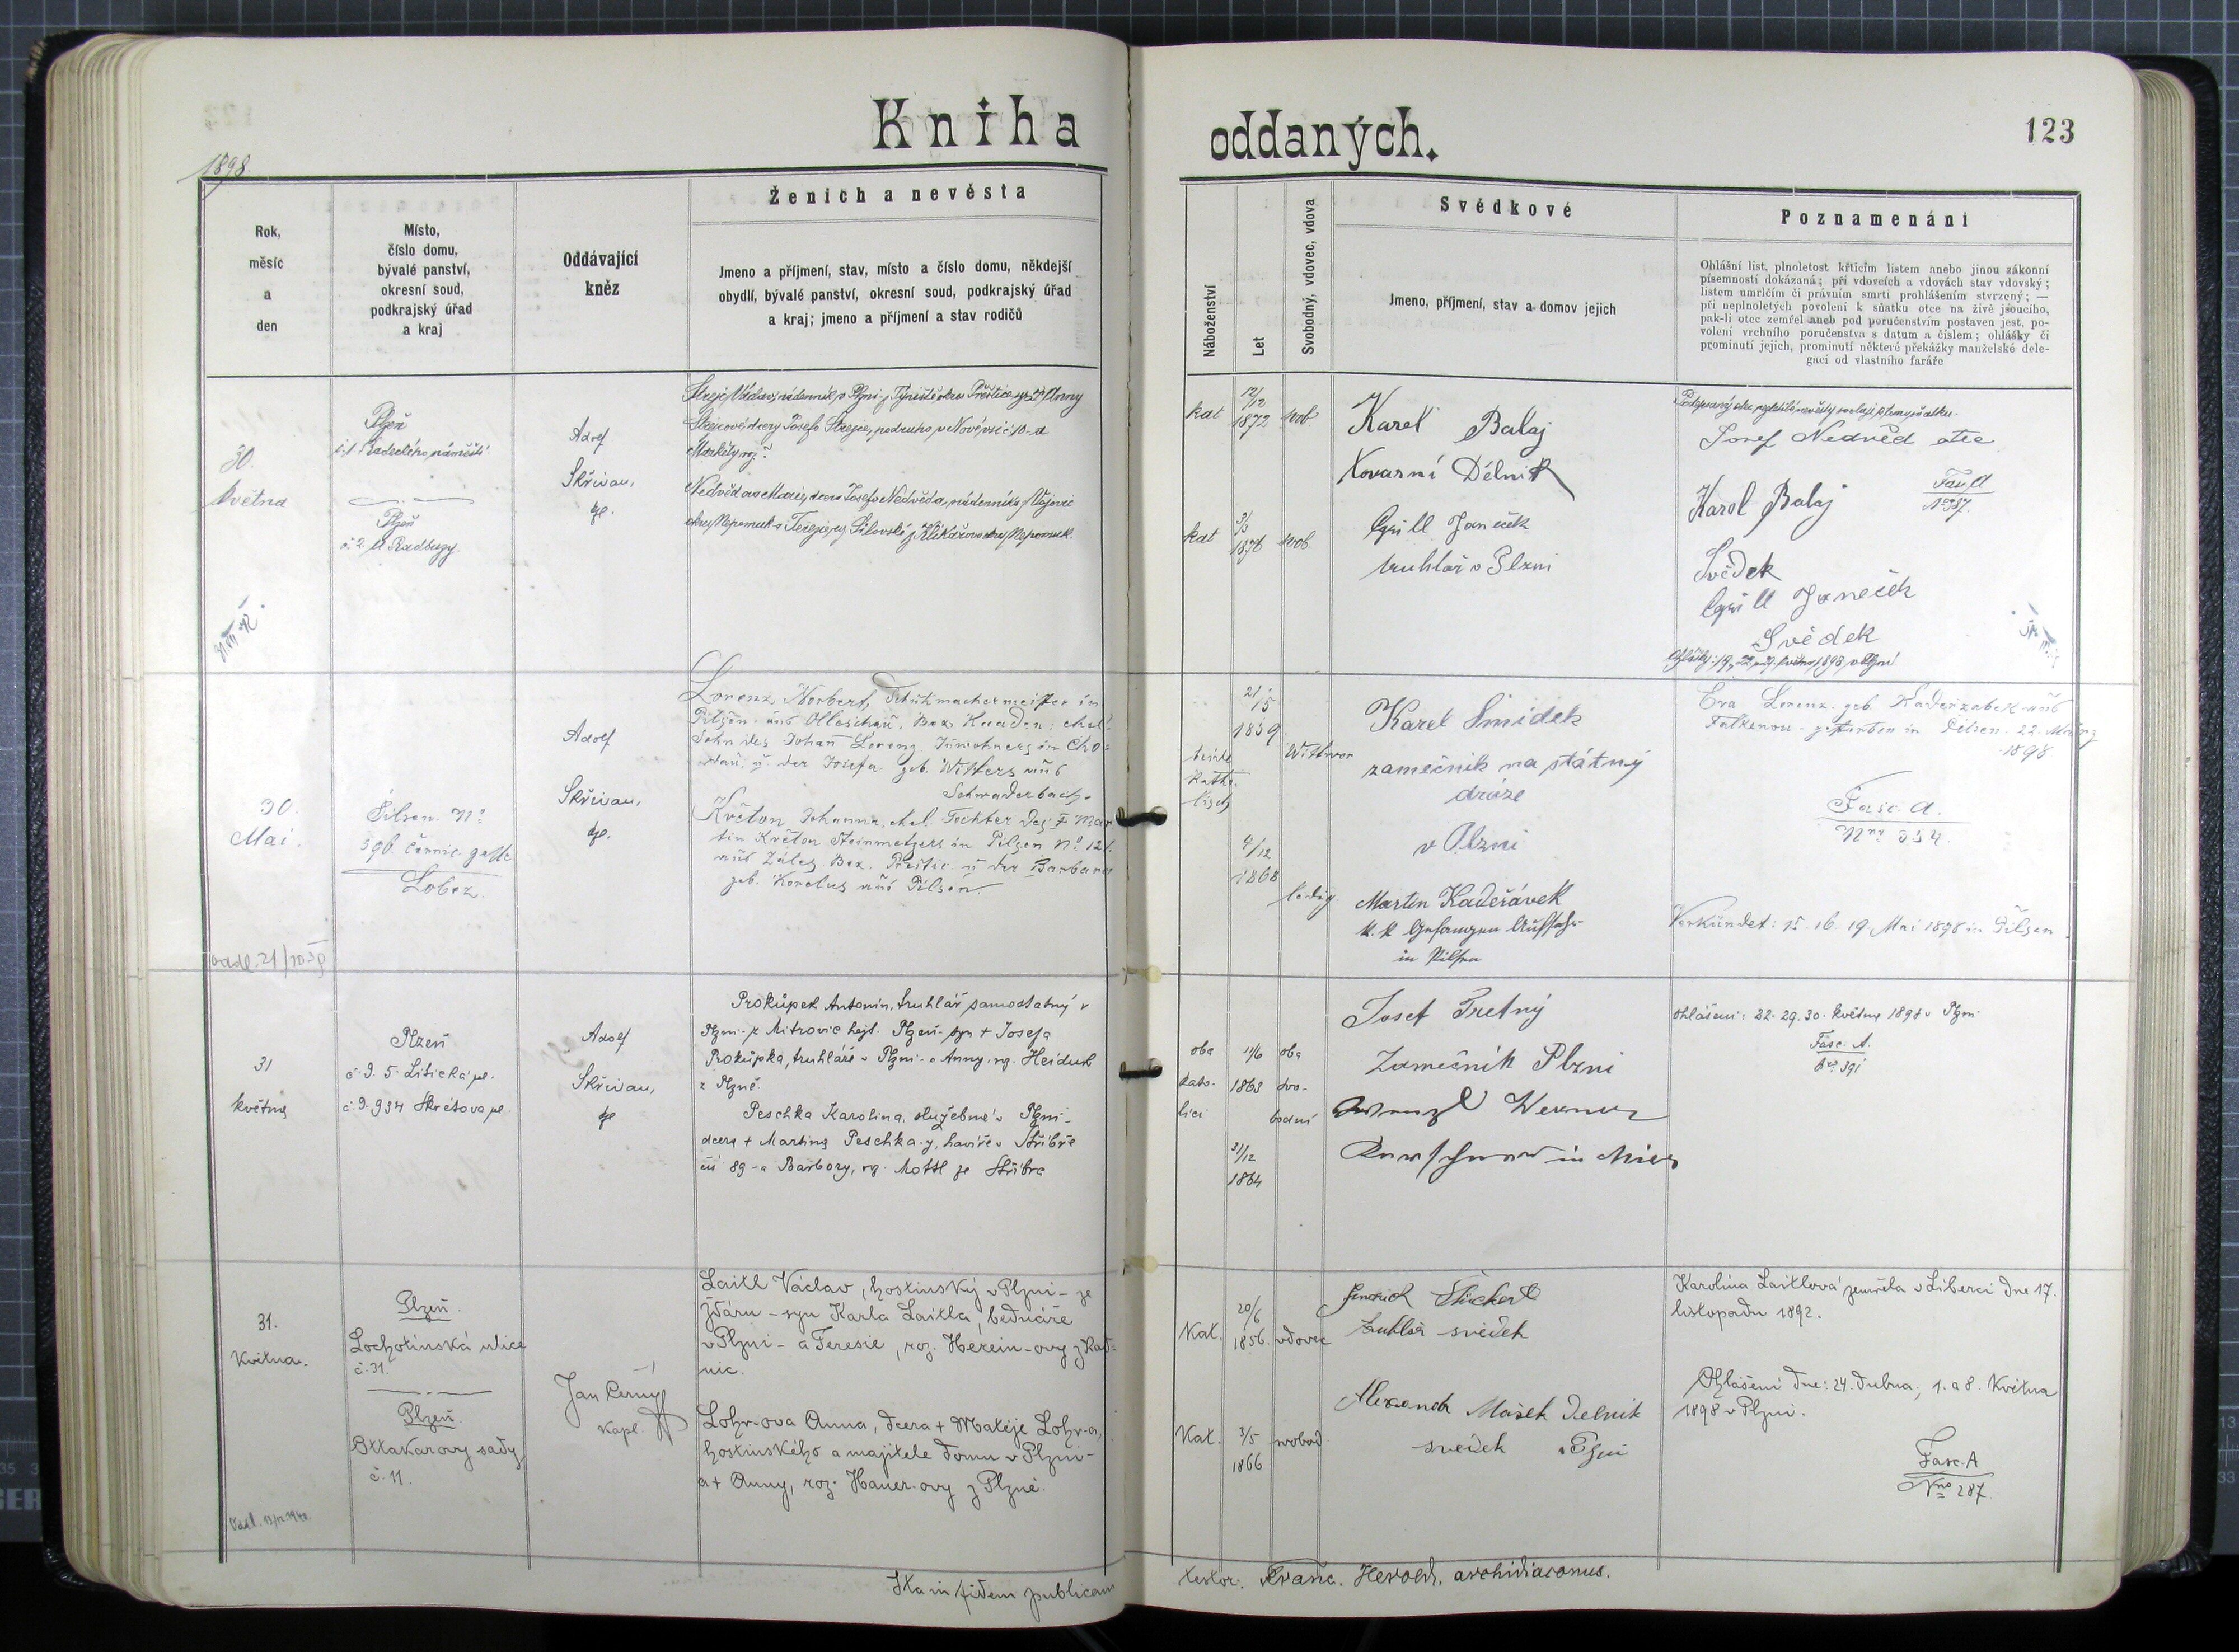 Kniha oddaných.
123
1898.
Rok,
měsíc
a
den
Místo,
číslo domu,
bývalé panství,
okresní soud,
podkrajský úřad
a kraj
Oddávající
kněz
Ženich a nevěsta
Jmeno a příjmení, stav, místo a číslo domu, někdejší
obydlí, bývalé panství, okresní soud, podkrajský úřad
a kraj; jmeno a příjmení a stav rodičů
Náboženství
Let
Svobodný, vdovec, vdova
Svědkové
Jmeno, příjmení, stav a domov jejich
Poznamenání
Ohlášní list, plnoletost křticím listem anebo jinou zákonní
písemností dokázaná; při vdovcích a vdovách stav vdovský;
listem umrlčím či právním smrti prohlášením stvrzený; —
při neplnoletých povolení k sňatku otce na živě jsoucího,
pak-li otec zemřel aneb pod poručenstvím postaven jest, po-
volení vrchního poručenstva s datum a číslem; ohlášky či
prominutí jejich, prominutí některé překážky manželské dele-
gací od vlastního faráře
30.
května
Plzeň
č. 1 Radeckého náměstí
Plzeň
č. 2. U Radbuzy.
Adolf
Skřivan,
Strejc Václav, nádenník v Plzni z Týniště okres Přeštice syn Anny
Strejcové dcery Josefa Strejce, podruha v Nové vsi č. 10 a
Markéty roz.
Nedvědova Marie, dcera Josefa Nedvěda, nádenníka z
okres Nepomuk a Terezie roz. z okres Nepomuk.
kat
12/12
1872
svob.
kat
3/3
1876
svob.
Karel Balaj
Kovarní Dělník
Cyrill Janeček
truhlář v Plzni
Podepsaný otec nezletilé nevěsty svoluje k tomu sňatku.
Josef Nedvěd otec
Karel Balaj
Svědek
Cyrill Janeček
Svědek
Fasc. A
No 387.
Ohlášky: 19, 22, 29. května 1898 v Plzni
30.
Mai.
Pilsen No
596. Černic. gasse
Lobez.
Adolf
Skřivan,
Lorenz Norbert, Schuhmachermeister in
Pilsen aus Olleschau, Bez. Kaaden; ehel.
Sohn des Johan Lorenz, Inwohners in Cho-
dau, u. der Josefa geb. Witters aus
Schwaderbach.
Květon Johanna, ehel. Tochter des † Mar
tin Květon Steinmetzers in Pilsen No 121.
aus Záles Bez. Prestic u der Barbara
geb. Korelus aus Pilsen
oddl. 21/10 39
21/5
1839
beide
Katho-
lisch
Wittwer
4/12
1868
ledig.
Karel Smidek
zamečník na státný
dráze
v Plzni
Martin Kadeřávek
k. k. Gefangen Aufseher
in Pilsen
Eva Lorenz geb. Kaderzabek aus
Falkenau gestorben in Pilsen 22. März
1898
Fasc. A.
Nro 354.
Verkündet: 15. 16. 19. Mai 1898 in Pilsen
31
května
Plzeň
č. d. 5. Litická ul.
č. d. 934 Skrétova ul.
Adolf
Skřivan,
Prokůpek Antonín, truhlář samostatný v
Plzni z Mitrovic hejt. Plzeň syn † Josefa
Prokůpka, truhláře v Plzni a Anny, roz. Heiduk
z Plzně.
Peschka Karolina, služebná v Plzni
dcera † Martina Peschka-y, havíře v Stříbře
čís 89 a Barbory, roz. Mottl ze Stříbra
oba
kato-
líci
11/6
1863
oba
svo-
bodní
31/12
1864
Josef Tretný
Zamečník Plzni
Wenzl Werner
in Mies
Ohlášeni: 22. 29. 30. května 1898 v Plzni
Fasc. A.
Nro 391
31.
Května.
Plzeň.
Lochotínská ulice
č. 31.
Plzeň.
Ottakarovy sady
č. 11.
Jan Černý
kapl.
Laitl Václav, hostinský v Plzni – ze
Ždáru – syn Karla Laitla, bednáře
v Plzni – a Teresie, roz. Herein-ovy z Rad-
nic.
Lohr-ova Anna, dcera † Matěje Lohr-a,
hostinského a majitele domu v Plzni –
a † Anny, roz. Hauer-ovy z Plzně.
Oddl. 13/12 1940.
Kat.
20/6
1856.
vdovec
Kat.
3/5
1866
svobod.
Heinrich
truhlář svědek
Mašek Delnik
svědek v Plzni
Karolina Laitlová zemřela v Liberci dne 17.
listopadu 1892.
Ohlášení dne: 24. dubna, 1. a 8. Května
1898 v Plzni.
Fasc. A
Nro 287.
Ita in fidem publicam
testor: Franc. Herold, archidiaconus.